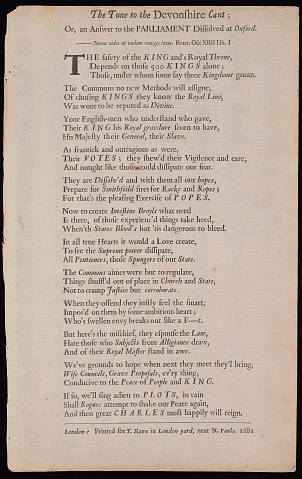 The Tune to the Devonshire Cant:
Or, an Answer to the PARLIAMENT Dissolved at Oxford.
Nonne vides ut nudum remigio latus. Horat. Ode XIIII Lib. I
THE safety of the KING and's Royal Throne,
Depends on those 500 KINGS alone;
Those, under whom some say three Kingdoms groan.
The Commons no new Methods will assigne,
Of chusing KINGS they know the Royal Line,
Was wont to be reputed as Devine.
Your English-men who understand who gave,
Their KING his Royal grandure scorn to have,
His Majesty their General, their Slave.
As frantick and outragious as were,
Their VOTES; they shew'd their Vigilence and care,
And nought like those could dissipate our fear.
They are Dissolv'd and with them all our hopes,
Prepare for Smithfield fires for Racks and Ropes;
For that's the pleasing Exercise of POPES.
Now to create Intestine Broyls what need
Is there, of those experienc'd things take heed,
When'th States Blood's hot 'tis dangerous to bleed.
In all true Hearts it would a Love create,
To see the Supreme power dissipate,
All Pentioners, those Spungers of our State.
The Commons aimes were but to regulate,
Things shuffl'd out of place in Church and State,
Not to cramp Justice but corroborate.
When they offend they justly feel the smart,
Impos'd on them by some ambitious heart;
Who's swellen envy breaks out like a F—t.
But here's the mischief, they espouse the Law,
Hate those who Subjects from Allegiance draw,
And of their Royal Master stand in awe.
We've grounds to hope when next they meet they'l bring,
Wise Councels, Grave Proposals, ev'ry thing,
Conducive to the Peace of People and KING.
If so, we'll sing adieu to PLOTS, in vain
Shall Rogues attempt to shake our Peace again,
And then great CHARLES most happily will reign.
London: Printed for T. Rawe in London yard, near St. Pauls. 1681